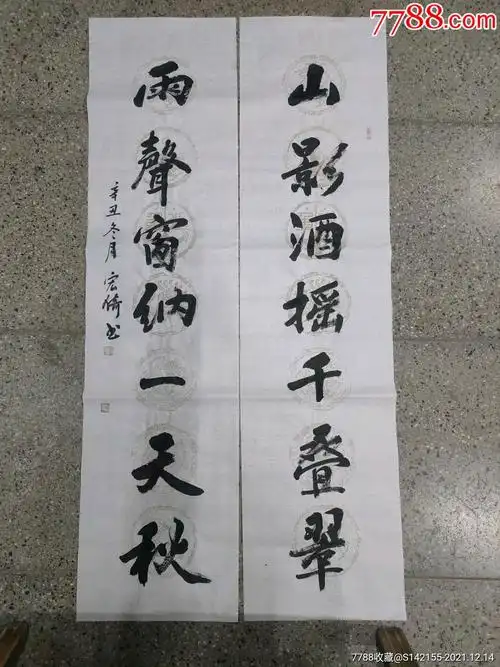 7788.com
山影酒摇千叠翠
雨聲窗纳一天秋
辛丑冬月宏倚书
7788收藏@S142155-2021.12.14